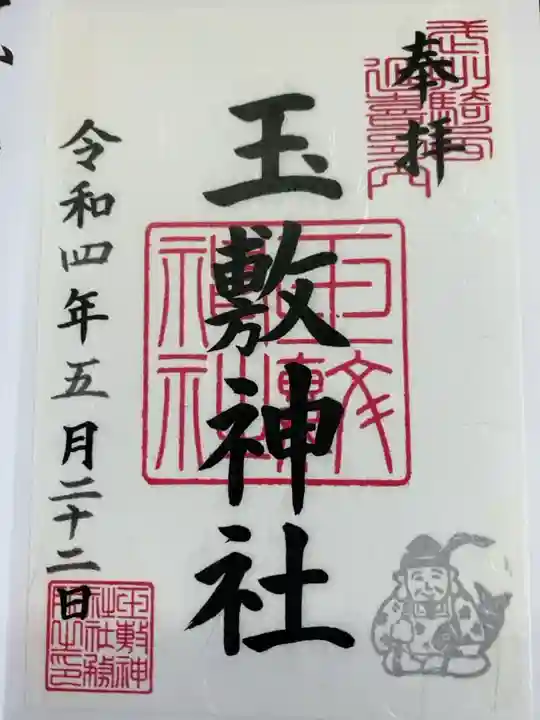 奉拝
玉敷神社
令和四年五月二十二日
玉敷
神社
玉敷神
社社務
所之印